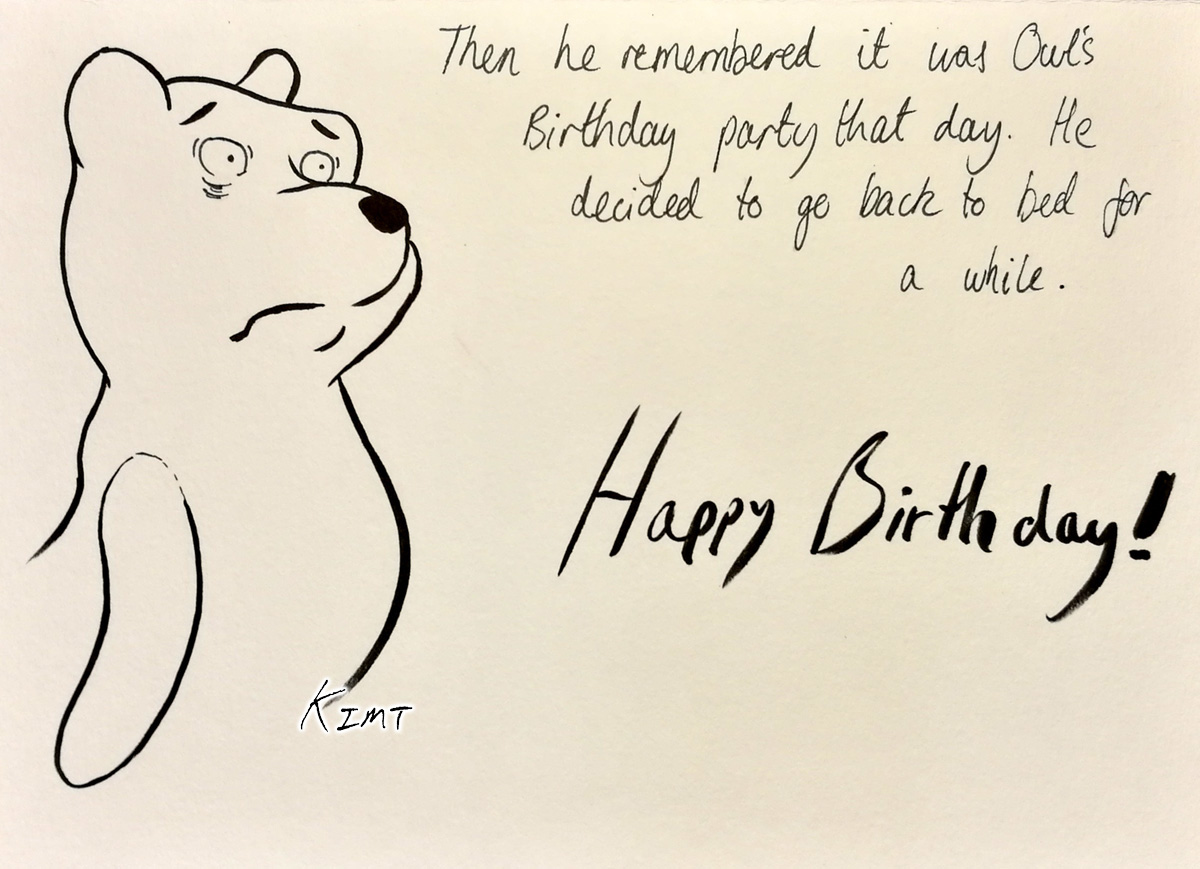 Then he remembered it was Owl's
Birthday party that day. He
decided to go back to bed for
a while.
Happy Birthday!
KIMT